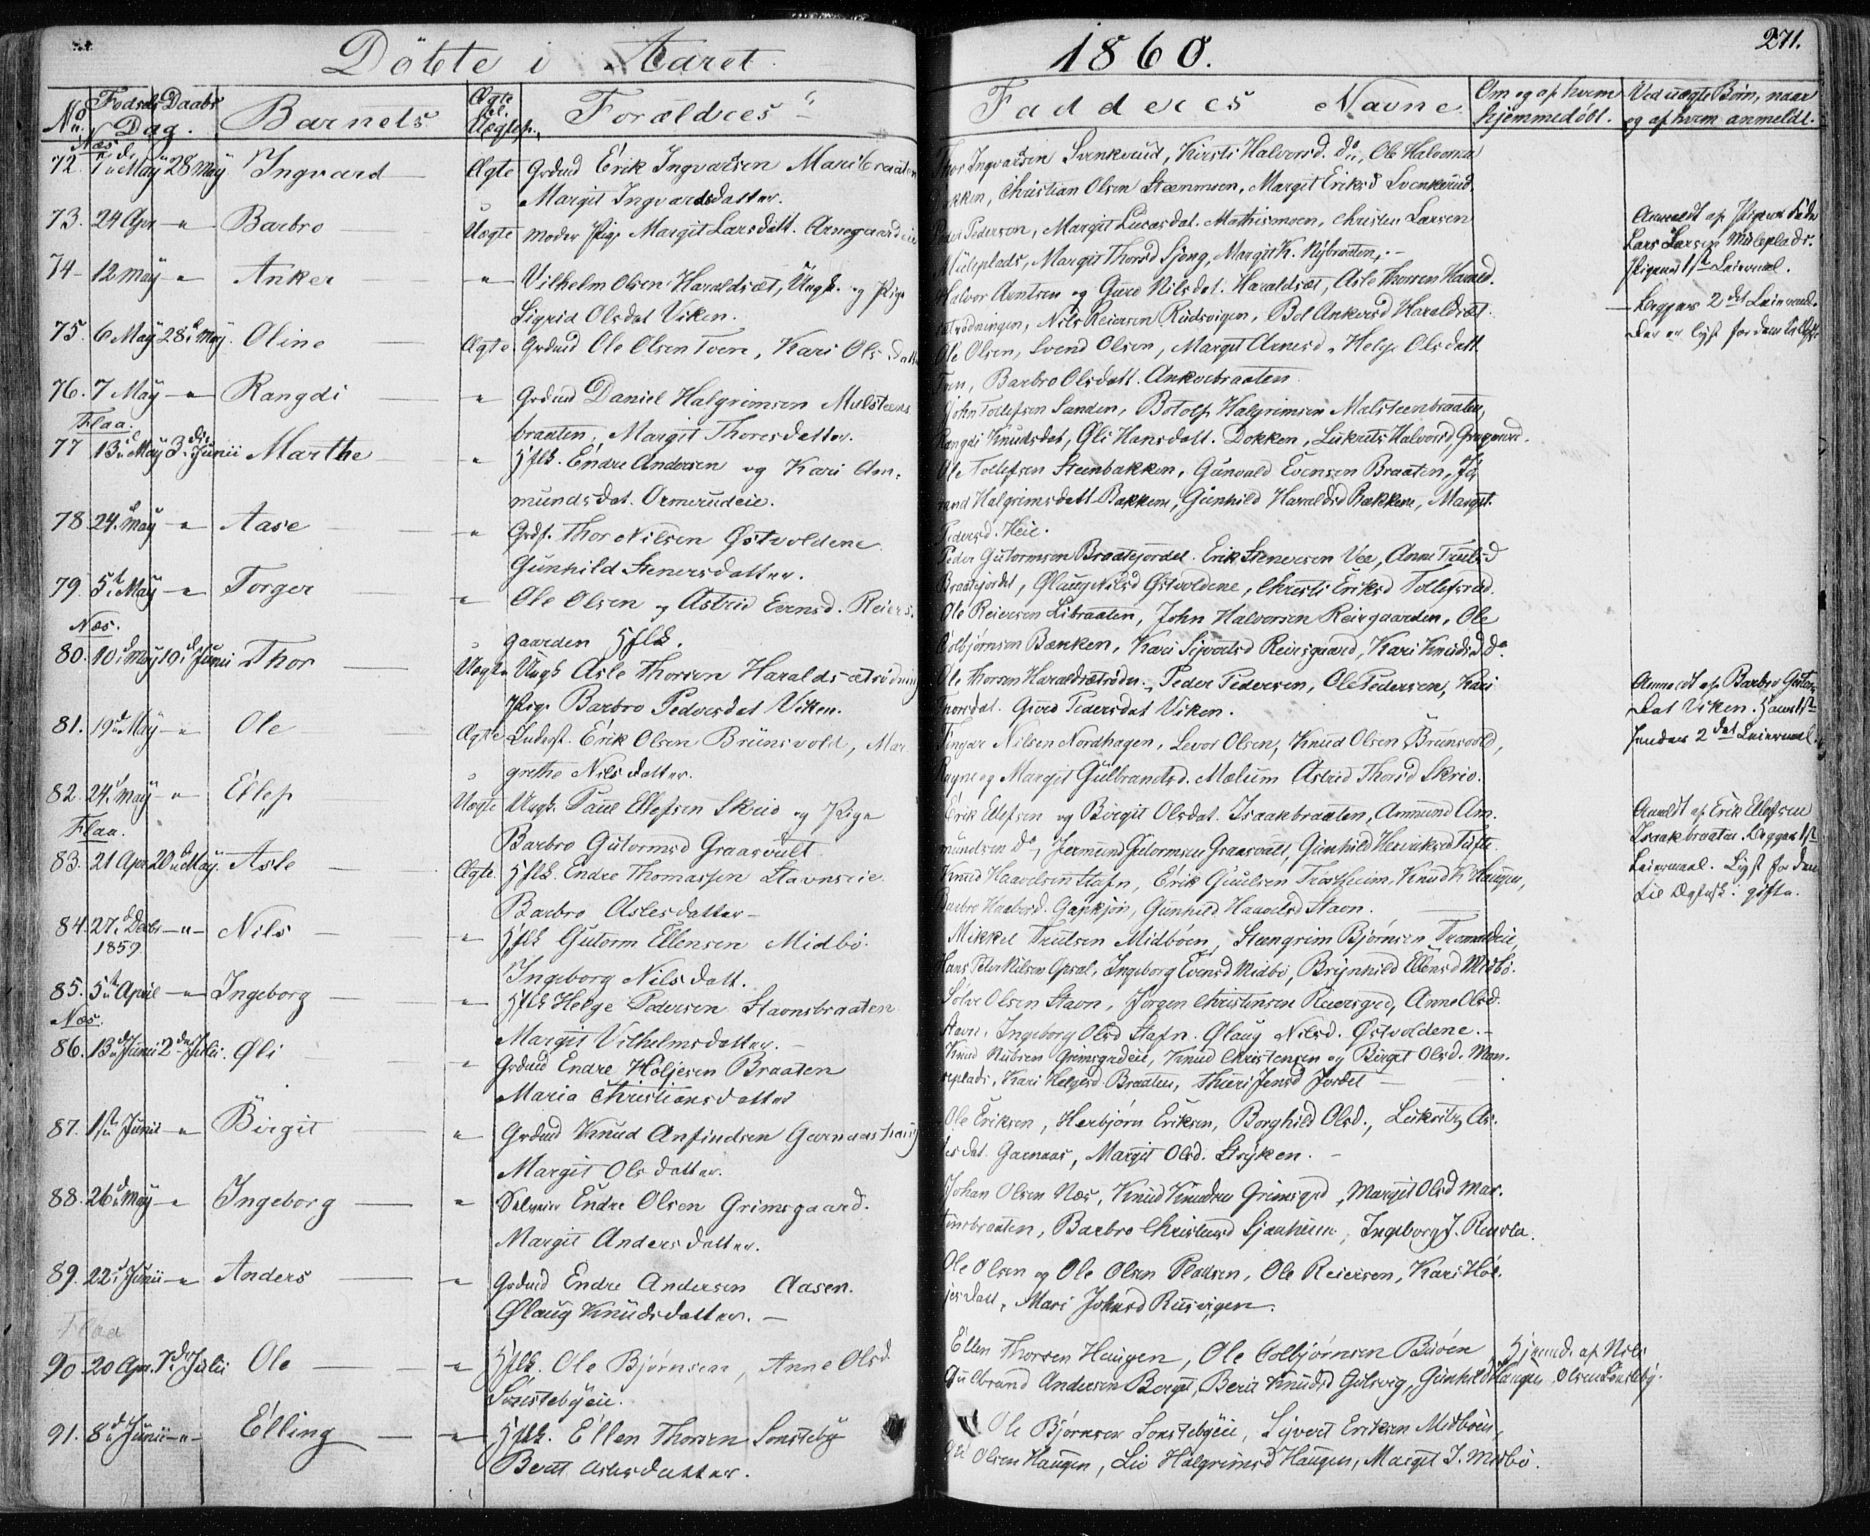 Döbte i Aaret 1860. 271.
No. Fødsels Daabs Dag. Barnets Ægte el. Uægte Forældres Fadderes Navne Om og af hvem hjemmedøbt. Ved uægte Børn, naar og af hvem anmeldt.
Næs
72. 7 May 28 May Ingvard Ægte Grdmd Erik Ingvarsen
Margit Ingvardsdatter.
Thor Ingvarsen Svenkerud, Kirsti Halvorsd. do, Ole Halvorsen
Christian Olsen, Margit Eriksd Svenkerud
73. 24 Apr - " Barbro Uægte moder Pige Margit Larsdatt. Arnegaardeie
Peder Pedersen, Margit Lucasdat. Mathismoen, Christen Larsen
Müleplads, Margit Thorsd Sjong, Margit K. Nÿbraaten. -
Anmeldt af Pigens Fader
Lars Larsen Müleplads.
Pigens 1ste Leiermaal.
74 - 12 May - " Anker " Vilhelm Olsen Haraldsæt, Ungk. og Pige
Sigrid Olsdat Viken.
Halvor Arntsen og Guro Nilsdat. Haraldsæt, Asle Thorsen Harald.
sætrødningen, Nils Reiersen Rudsvigen, Bol Ankersd Haraldsæt.
- Begges 2det Leiermaal.
75. 6 May 28 May. Oline Ægte Grdmd Ole Olsen Toen, Kari Olsdatter
Ole Olsen, Svend Olsen, Margit Arnesd, Helge Olsdatt.
Toen, Barbro Olsdatt. Ankerbraaten
76. 7 May - " Rangdi " Grdmd Daniel Halgrimsen Mulsteens
braaten, Margit Thoresdatter.
John Tollefsen Sanden, Botolf Halgrimsen Malsteenbraaten,
Rangdi Knudsdat, Oli Hansdatt. Dokken, Lukrets Halvorsd
Flaa.
77 13 May 3die Junii Marthe " Hflk. Endre Andersen og Kari Am-
mundsdat. Ormerudeie.
Ole Tollefsen Steenbakken, Gunvald Evensen Braaten, Jø-
rand Halgrimsdatt Bakkene, Gunhild Haraldsd Bakkene, Margit
Pedersd. Heie.
78 24. May - " Aase " Grdf. Thor Nilsen Østvoldene
Gunhild Stenersdatter.
Peder Gutormsen Braatejordet. Erik Stenersen Vee, Anne Truls.d
Braatejordet, Olaug Nilsd Østvoldene, Christi Eriksd Tollefsrud.
79. 5te May - " Torger " Ole Olsen og Astrid Evensd. Reiers.
gaarden Hflk.
Ole Reiersen Libraaten, John Halvorsen Reiergaarden, Ole
Colbjørnsen Bænken, Kari Sjvertsd Reiersgaard, Kari Knudsd do.
Næs.
80. 10 May 10 Junii Thor Uægte Ungk Asle Thorsen Haralds-ætrødning
Pige Barbro Pedersdat Viken.
Ole Thorsen Haraldsætrødn., Peder Pedersen, Ole Pedersen, Kari
Thorsdat. Guro Pedersdat Viken.
Anmeldt af Barbro
dat Viken. Hans 1ste
hendes 2det Leiermaal.
81. 19 May - " Ole Ægte Inderst. Erik Olsen Brünsvold, Mar-
grethe Nilsdatter.
Fingar Nilsen Nordhagen, Levor Olsen, Knud Olsen Brunsvold,
og Margit Gulbrandsd. Mælum Astrid Thorsd Skrio.
82. 24 May - " Ellef Uægte Ungk. Paul Ellefsen Skrio og Pige
Barbro Gutormsd Graasvult
Erik Ellefsen og Birgit Olsdat. Isaakbraaten, Ammund Am.
mundsen do, Jermund Gutormsen Graasvult, Gunhild Henriksd Tufte
Anmeldt af Erik Ellefsen
Isaakbraaten. Begges 1ste
Leiermaal. Lyst for dem
Flaa.
83. 21 Apr 20 May. Asle Ægte. Hflk. Endre Thomassen Stavnseie
Barbro Aslesdatter -
Knud Haavelsen Stafn, Erik Guulsen Trostheim, Knud K Haugen,
Gunhild Haavelsd Stavn.
84. 27 Decbr - " - Nils " Hflk Gutorm Ellensen Midbö.
1859
Ingeborg Nilsdatt.
Mikkel Trulsen Midböen, Stængrim Bjørnsen
Hans Peter Nilsen Opsal, Ingeborg Evensd Midbö, Brynhild Ellensd Midbö.
85. 5te April - " Ingeborg " Hflk Helge Pedersen Stavnsbraaten
Margit Vilhelmsdatter. -
Sölve Olsen Stavn, Jørgen Christensen, Anne Olsd.
Stavn. Ingeborg Olsd Stafn. Olaug Nilsd. Østvoldene. -
Næs.
86. 13 Junii 2den Julii. Oli " Grdmd Endre Holjesen Braaten
Maria Christiansdatter
Knud Nubsen Grimsgrdeie, Knud Christensen og Birgit Olsd. Mon-
seplads, Kari Helgesd Braaten, Thuri Jensd Jordet
87. 1ste Junii - " Birgit " Grdmd Knud Anfindsen Garnaashaug
Margit Olsdatter.
Ole Eriksen, Herbjörn Eriksen, Borghild Olsd., Lukrits As-
lesdat. Garnaas, Margit Olsd. Strÿken. -
88. 26 May - " Ingeborg " Endre Olsen Grimsgaard.
Margit Andersdatter.
Johan Olsen Næs, Knud Knudsen Grimsgrd, Margit Olsd Mar-
tinsbraaten, Barbro Christensd Sjanheim, Ingeborg J. Rensla.
89. 22 Junii - " Anders " Grdmd Endre Andersen Aasen.
Olaug Knudsdatter. -
Ole Olsen og Ole Olsen Pladsen, Ole Reiersen, Kari Hol-
jesdatt, Mari Johnsd Rusvigen.
Flaa
90 20 Apr. 1 Julii Ole " Hflk. Ole Bjørnsen, Anne Olsd.
Sonstebyeie.
Ellen Thorsen Haugen, Ole Colbjørnsen Buöen
Gulbrand Andersen Berget, Berit Knudsd Gulsvig, Gunhild Haugen
Hjemd. af Nils
Olsen Sonsteby.
91. 8 Junii - " - Elling " Hflk. Ellen Thorsen Sonsteby
Berit Aslesdatter.
Ole Bjørnsen Sonstebyeie, Sjvert Eriksen Midböen,
Olsen Haugen, Liv Halgrimsd Haugen, Margit I. Midbö.